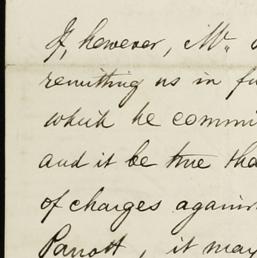 If, however, Mr.
remitting us in
which he
and it be true
of charges
Parrott, it may